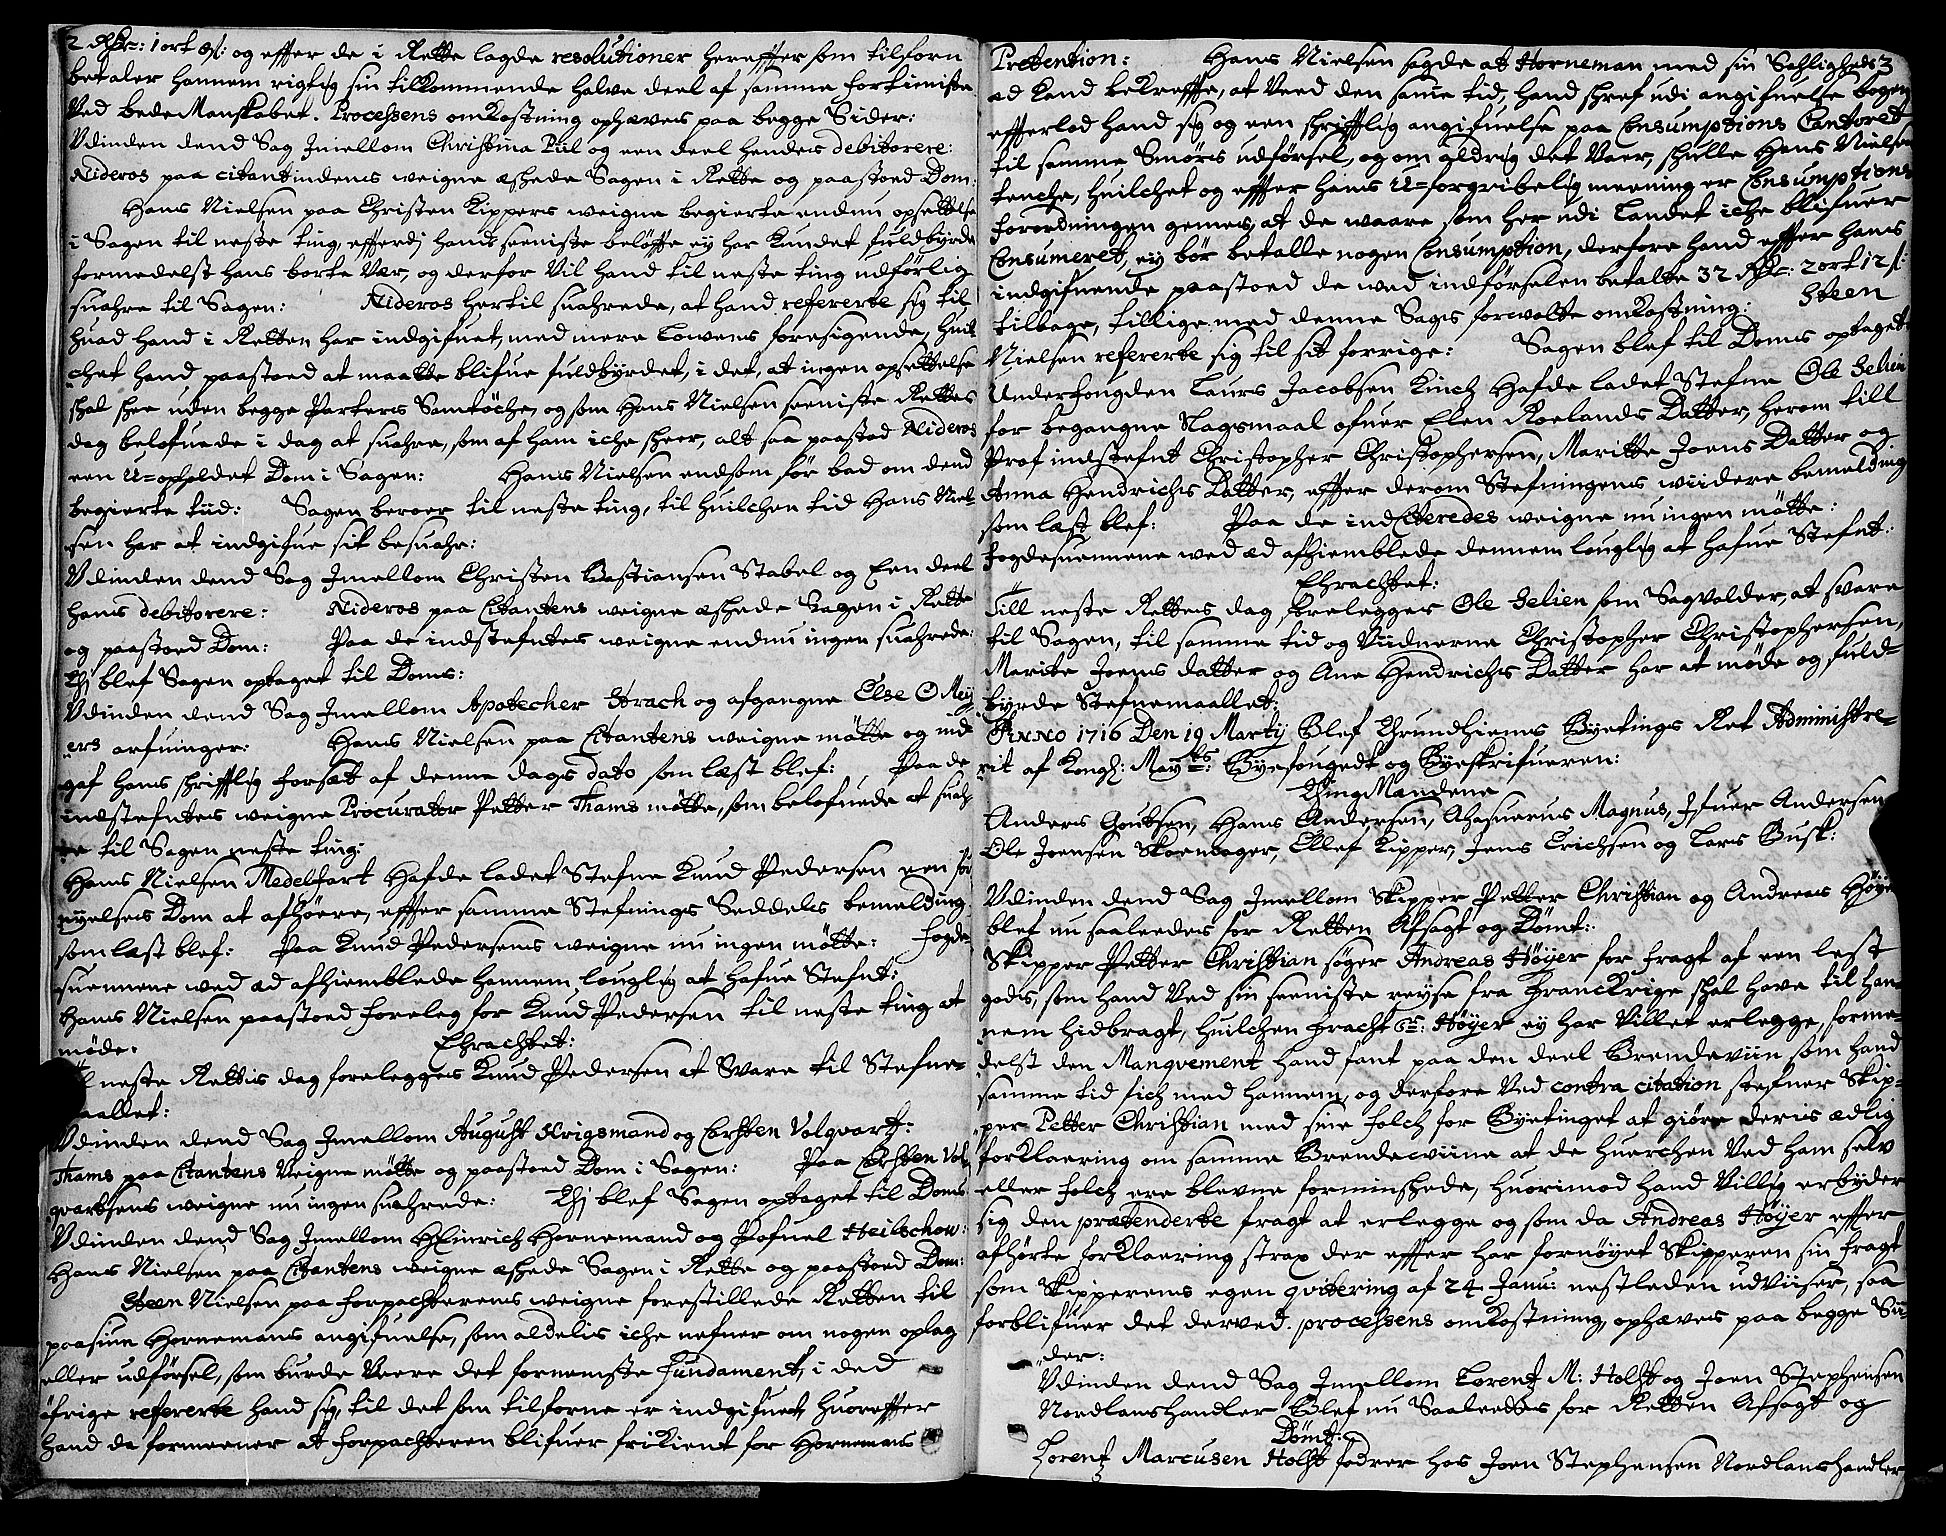 2 Rdr: 1 ort 8 s: og effter de i Rette lagde resolutioner hereffter som tilforn
betaler hannem rigtig sin tilkommende halve deel af samme fortieniste
Ved bede Manskabet. Processens omkostning ophæves paa begge Sider:
Udinden dend Sag Imellom Christina Piil og een deel hendes debitorere:
Nideros paa citantindens weigne æskede Sagen i Rette og paastoed Dom:
Hans Nielsen paa Christen Kippers weigne begierte endnu opsettelse
i Sagen til neste ting, efferdj hands seeniste beløffte ey har kundet fuldbyrde
formedelst hans borte Vær, og derfor Vil hand til neste ting udførlig
suahre til Sagen: Nideros hertil suahrede, at hand refererte sig til
huad hand i Retten har indgifuet, med mere Lowens foresigende, huil
chet hand paastoed at maatte blifue fuldbyrdet, i det, at ingen opsettelse
skal skee uden begge Parters Samtøche, og som Hans Nielsen seeniste Rettes
dag belofuede i dag at suahre, som af ham iche skeer, alt saa paastod Nideros
een U=opholdet Dom i Sagen: Hans Nielsen endsom før bad om dend
begierte tiid: Sagen beroer til neste ting, til huilchen tid Hans Niel-
sen har at indgifue sit besuahr:
Udinden dend Sag Imellom Christen Bastiansen Stabel og Een deel
hans debitorere: Nideros paa Citantens weigne æskede Sagen i Rette
og paastoed Dom: Paa de indstefntes weigne endnu ingen suahrede:
Thj blef Sagen optaget til Doms:
Udinden dend Sag Imellom Apotecher Strach og afgangne Else O Mey
ers arfuinger: Hans Nielsen paa Citantens weigne møtte og ind
gaf hans skrifftlig forsæt af denne dags dato som læst blef: Paa de
indstefntes weigne Procurator Petter Thams møtte, som belofuede at suah
re til Sagen neste ting:
Hans Nielsen Medelfart Hafde ladet Stefne Knud Pedersen een for
nyelses Dom at afhøre, effter samme Stefnings Seddels bemelding
som læst blef: Paa Knud Pedersens weigne nu ingen møtte: Fogde-
suennene wed æd afhiemblede hannem louglig at hafue Stefnt:
Hans Nielsen paastoed foreleg for Knud Pedersen til neste ting at
møde: Ehrachtet:
neste Rettis dag forelegges Knud Pedersen at Svare til Stefne-
aallet:
Udinden dend Sag Imellom August Krigsmand og Corsten Volqvartz:
Thams paa Citantens Veigne møtte og paastoed Dom i Sagen: Paa Corsten Vol
qvartsens weigne nu ingen suahrede: Thj blef Sagen optaget til Doms
Udinden dend Sag Imellom Hinrich Hornemand og Pofuel Heilschow:
Hans Nielsen paa Citantens weigne æskede Sagen i Rette og paastoed Dom:
Steen Nielsen paa forpachterens weigne forestillede Retten til
paasiun Hornemans angifuelse, som aldelis iche nefner om nogen oplag
eller udførsel, som burde Veere det fornemste Fundament, i det
øfrige refererte hand sig, til det som tilforne er indgifuet, huoreffter
hand da formeener at forpachteren blifuer frikient for Hornemans
3
Pretention: Hans Nielsen sagde at Horneman med sin Sahligheds
æd kand bekreffte, at Veed den same tid, hand skref udi angifuelse bogen
effterlod hand sig og een skrifftlig angifuelse paa Consumptions Contoret
til samme Smørs udførsel, og om aldrig det Vaer, skulle Hans Nielsen
tenche, huilchet og effter hans U=forgribelig meening er Consumptions
forordningen gemes, at de waare som her udi Landet iche blifuer
Consumeret, ey bør betalle nogen Consumption, derfore hand effter hans
indgifuende paastoed de wed indførselen betalte 32 Rdr: 2 ort 12 s:
tilbage, tillige med denne Sags forvolte omkostning: Steen
Nielsen refererte sig til sit forrige: Sagen blef til Doms optaget
Underfougden Laurs Jacobsen Kinch Hafde ladet Stefne Ole Selien
for begangne Slagsmaal ofuer Elen Roelands Datter, herom till
Prof indstefnt Christopher Christophersen, Maritte Joens Datter og
Anna Hendrichs Datter, effter derom Stefningens wiidere bemelding
som læst blef: Paa de indCiteredes weigne nu ingen møtte:
fogdesuennene wed æd afhiemblede dennem louglig at hafue Stefnt:
Ehrachtet:
Till neste Rettes dag forelegger Ole Selien som Sagvolder, at svare
til Sagen, til samme tid og Viidnerne Christopher Christophersen,
Marite Joens datter og Ane Hendrichs Datter har at møde og fuld-
byrde Stefnemaallet:
Anno 1716 Den 19 Martij Blef Thrundhiems Byetings Ret Administre-
rit af Kongl: Maytts: Byefougedt og Byeskrifueren:
Ting Mændene
Anders Goutsen, Hans Andersen, Ahasuerus Magnus, Ifuer Andersen
Ole Joensen Skoenbager, Ellef Kipper, Jens Erichsen og Lars Busk:
Udinden dend Sag Imellom Skipper Petter Christian og Andreas Høyer
blef nu saaleedes for Retten Afsagt og Dømt:
Skipper Petter Christian søger Andreas Høyer for fragt af een lest
gods, som hand Ved sin seeniste reyse fra Franckrige skal have til han
nem hidbragt, huilchen fracht Sr: Høyer ey har Villet erlegge, forme
delst den Manqvement hand fant paa den deel Brendeviin som hand
samme tid fich med hannem, og derfore Ved contra citation stefner Skip-
per Petter Christian med sine folch for Byetinget at giøre deris ædlig
forklaering om samme Brendewiine at de huerchen Ved ham selv
eller folch ere blevne forminskede, huorimod hand Villig erbyder
sig den prætenderte fragt at erlegge og som da Andreas Høyer effter
afhørte forklaering strax der effter har fornøyet Skipperen sin fragt
som Skipperens egen qvitering af 24 Janu: nestleden udviiser, saa
forblifuer det derved. processens omkostning ophæves paa begge Sii-
der:
Udinden dend Sag Imellom Lorentz M: Holst og Joen Stephensen
Nordlanshandler Blef nu Saaleedes for Retten Afsagt og
Dømt:
Lorentz Marcusen Holst fodrer hos Joen Stephensen Nordlanshandler